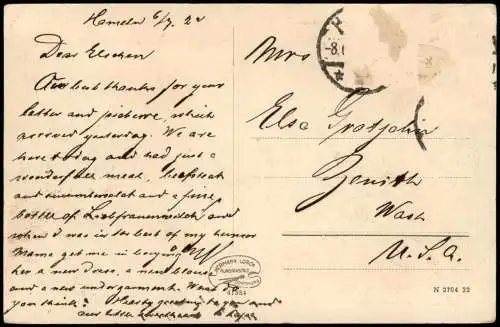 Hameln 6/7. 22
Dear Elschen
Our best thanks for your
letter and picture, which
arrived yesterday. We are
here today and had just a
wonderful meal, beefsteak
and and a fine
bottle of Liebfraumilch and
when I was in the best of my humor
Mama get me in buying
her a new dress, a new blouse
and a new undergarment. What do
you think? Hearty greetings to you and
our little
Mrs
Elsa Grotjahn
Zenith
Wash
U.S.A.
-8.
HERMANN LORCH
KUNSTANSTALT
DORTMUND
N 2704 22